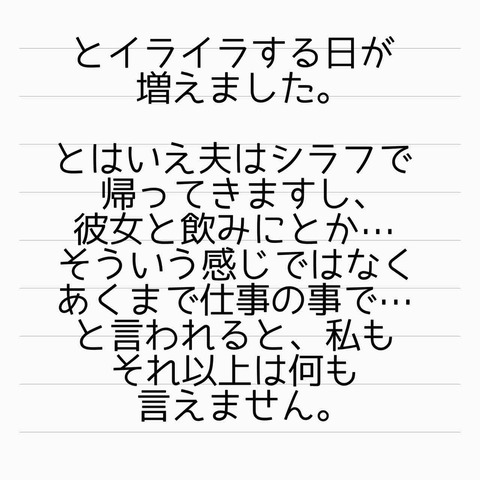 とイライラする日が
増えました。
とはいえ夫はシラフで
帰ってきますし、
彼女と飲みにとか…
そういう感じではなく
あくまで仕事の事で…
と言われると、私も
それ以上は何も
言えません。